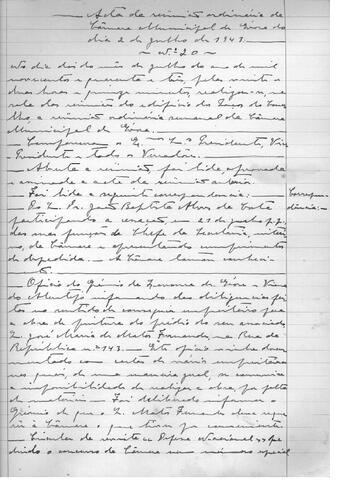 Acta da reunião ordinária da
Câmara Municipal de Évora do
dia 2 de Julho de 1943.
— Nº 20 —
Aos dia dois do mês de Julho do ano de mil
novecentos e quarenta e três, pelas vinte e
duas horas e quinze minutos, realizou-se, na
sala das reuniões do edifício dos Paços do Conce
lho, a reunião ordinária semanal da Câmara
Municipal de Évora.
Compareceram o Presidente, Vice
Presidente e todos os Vereadores.
Aberta a reunião, foi lida, aprovada
e assinada a acta da reunião anterior.
Foi lida a seguinte correspondência:
Correspon
dência:
Do João Baptista Alves da Costa
participando a cessação, em 27 de Junho p.p.,
das suas funções de Chefe da Secretaria, interi
no, da Câmara e apresentando cumprimentos
de despedida. A Câmara tomou conheci
mento.
Ofício do Grémio da Lavoura de Évora e Viana
do Alentejo, informando das diligências fei
tas no sentido de conseguir empreiteiro para
a obra de pintura do prédio do seu associado
José Maria de Matos Fernandes, na Rua da
República nº 143. Este ofício vinha docu
mentado com cartas de vários empreiteiros
nas quais, de uma maneira geral, se comunica
a impossibilidade de realizar a obra, por falta
de materiais. Foi deliberado informar o
Grémio de que o Matos Fernandes deve reque
rer à Câmara o que tiver por conveniente.
Circular da revista "Defesa Nacional" pe
dindo o concurso da Câmara um número especial